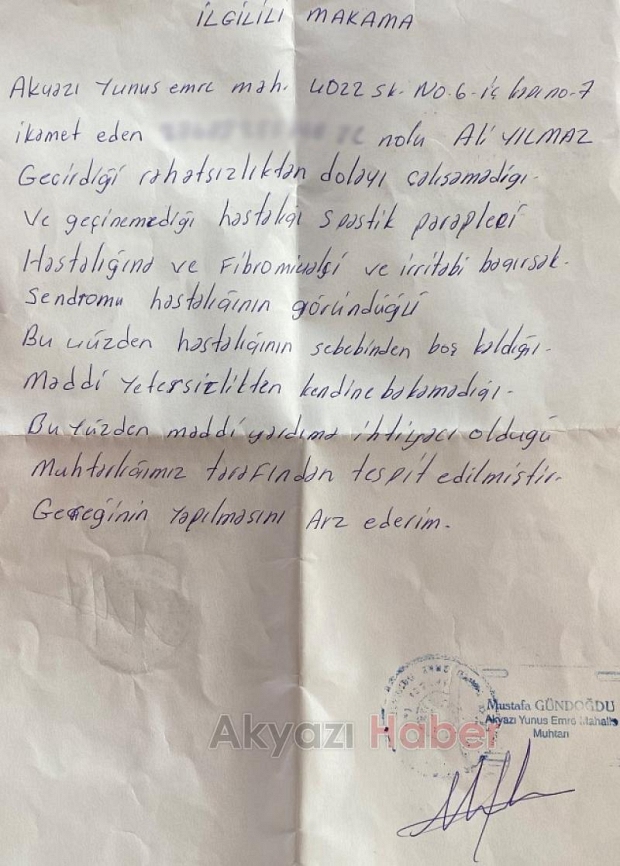 İLGİLİLİ MAKAMA
Akyazı Yunus emre mah. 4022 sk. No.6-iç kapı no-7
ikamet eden TC nolu Ali YILMAZ
Geçirdiği rahatsızlıktan dolayı çalışamadığı-
Ve geçinemediği hastalığı spastik parapleci
Hastalığına ve Fibromiyalçi ve irritabi bağırsak-
Sendromu hastalığının göründüğü
Bu yüzden hastalığının sebebinden boş kaldığı-
Maddi yetersizlikten kendine bakamadığı-
Bu yüzden maddi yardıma ihtiyacı olduğu
Muhtarlığımız tarafından tespit edilmiştir-
Gereğinin yapılmasını Arz ederim.
Mustafa GÜNDOĞDU
Akyazı Yunus Emre Mahalle
Muhtarı
Akyazı Haber